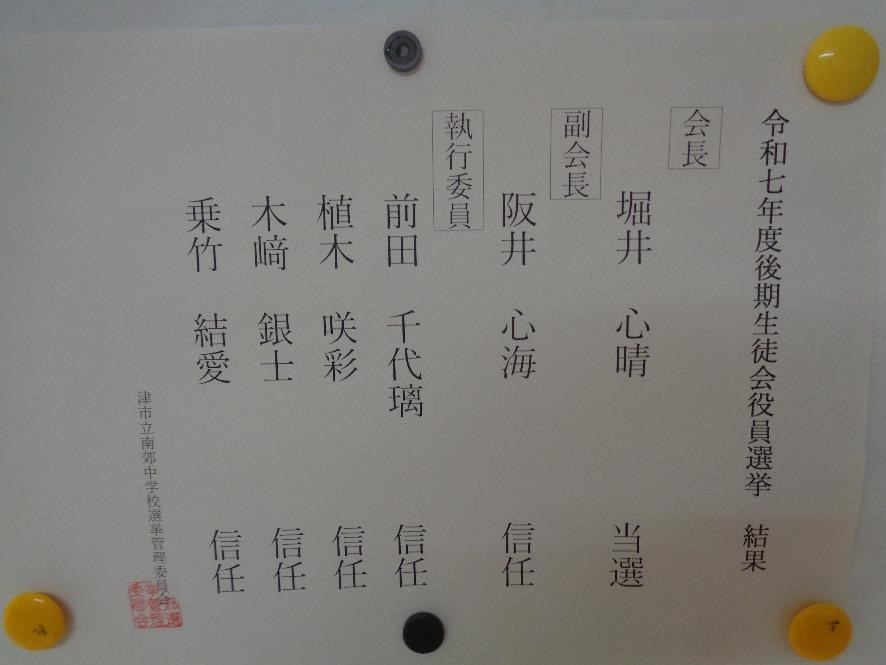 令和七年度後期生徒会役員選挙 結果
会長
堀井 心晴 当選
副会長
阪井 心海 信任
執行委員
前田 千代璃 信任
植木 咲彩 信任
木﨑 銀士 信任
乗竹 結愛 信任
津市立南郊中学校選挙管理委員会